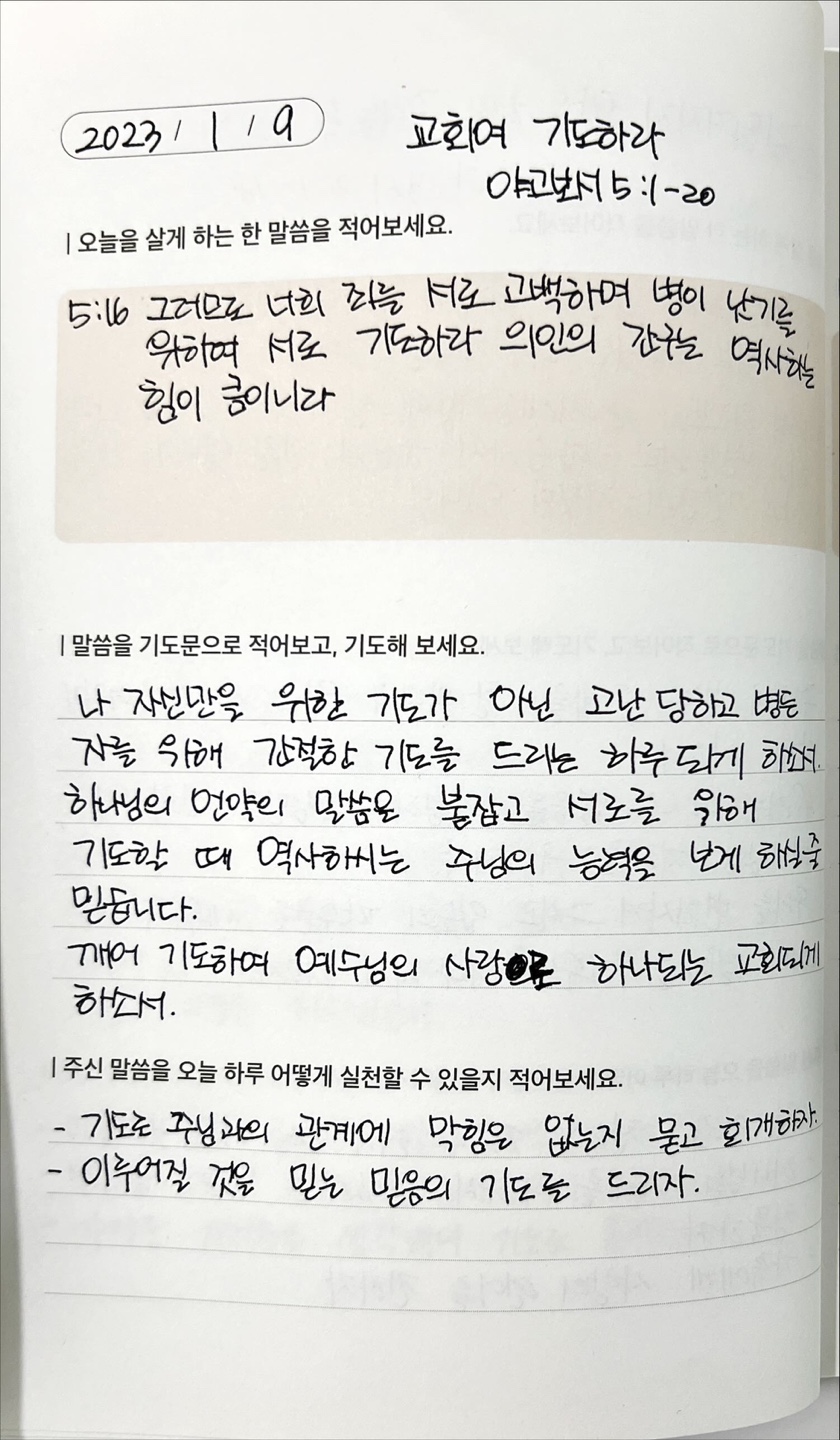 2023 / 1 / 9
교회여 기도하라
야고보서 5:1-20
| 오늘을 살게 하는 한 말씀을 적어보세요.
5:16 그러므로 너희 죄를 서로 고백하며 병이 낫기를
위하여 서로 기도하라 의인의 간구는 역사하는
힘이 큼이니라
| 말씀을 기도문으로 적어보고, 기도해 보세요.
나 자신만을 위한 기도가 아닌 고난 당하고 병든
자를 위해 간절한 기도를 드리는 하루 되게 하소서.
하나님의 언약의 말씀을 붙잡고 서로를 위해
기도할 때 역사하시는 주님의 능력을 보게 하실줄
믿습니다.
깨어 기도하여 예수님의 사랑으로 하나되는 교회되게
하소서.
| 주신 말씀을 오늘 하루 어떻게 실천할 수 있을지 적어보세요.
- 기도로 주님과의 관계에 막힘은 없는지 묻고 회개하자.
- 이루어질 것을 믿는 믿음의 기도를 드리자.